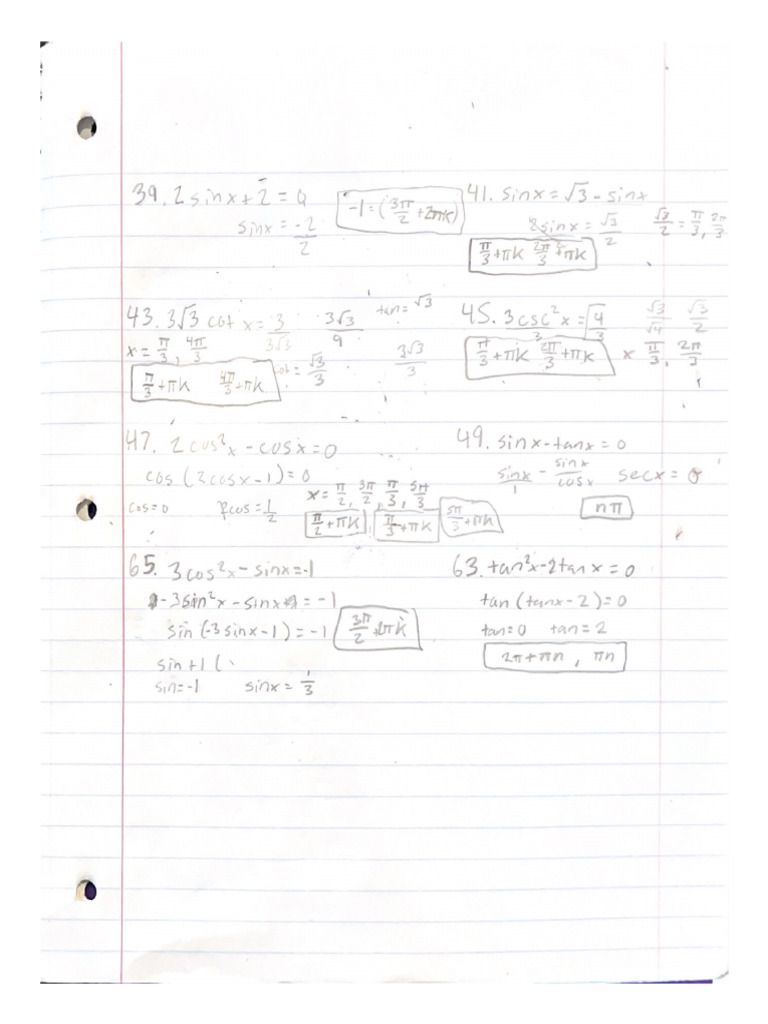 39. 2 sinx + 2 = 0
sinx = -2/2
-1 = (3π/2 + 2πk)
41. sinx = √3 - sinx
2sinx = √3/2
√3/2 = π/3, 2π/3
π/3 + πk 2π/3 + πk
43. 3√3 cot x = 3/3√3
3√3/9
tan = √3
x = π/3, 4π/3
cot = √3/3
3√3/3
π/3 + πk 4π/3 + πk
45. 3csc²x = 4/3
√3/√4 √3/2
π/3 + πk 2π/3 + πk
x π/3, 2π/3
47. 2cos²x - cosx = 0
cos (2cosx - 1) = 0
cos = 0 2cos = 1/2
x = π/2, 3π/2, π/3, 5π/3
π/2 + πk π/3 + πk 5π/3 + πk
49. sinx - tanx = 0
sinx/1 - sinx/cosx secx = 0
nπ
65. 3cos²x - sinx = -1
-3sin²x - sinx = -1
sin (-3 sinx - 1) = -1
3π/2 + 2πk
sin + 1 (
sin = -1 sinx = 1/3
63. tan²x - 2tan x = 0
tan (tanx - 2) = 0
tan = 0 tan = 2
2π + πn , πn